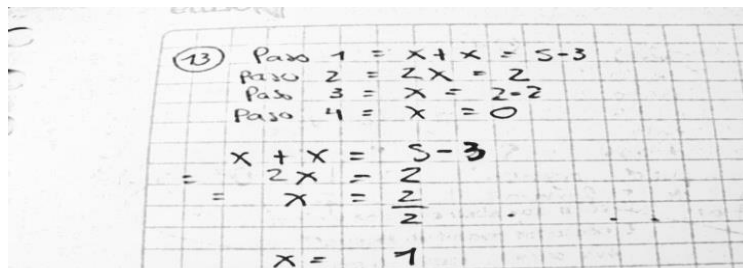 13 Paso 1 = x + x = 5-3
Paso 2 = 2x = 2
Paso 3 = x = 2-2
Paso 4 = x = 0
x + x = 5-3
= 2x = 2
= x = 2/2
x = 1